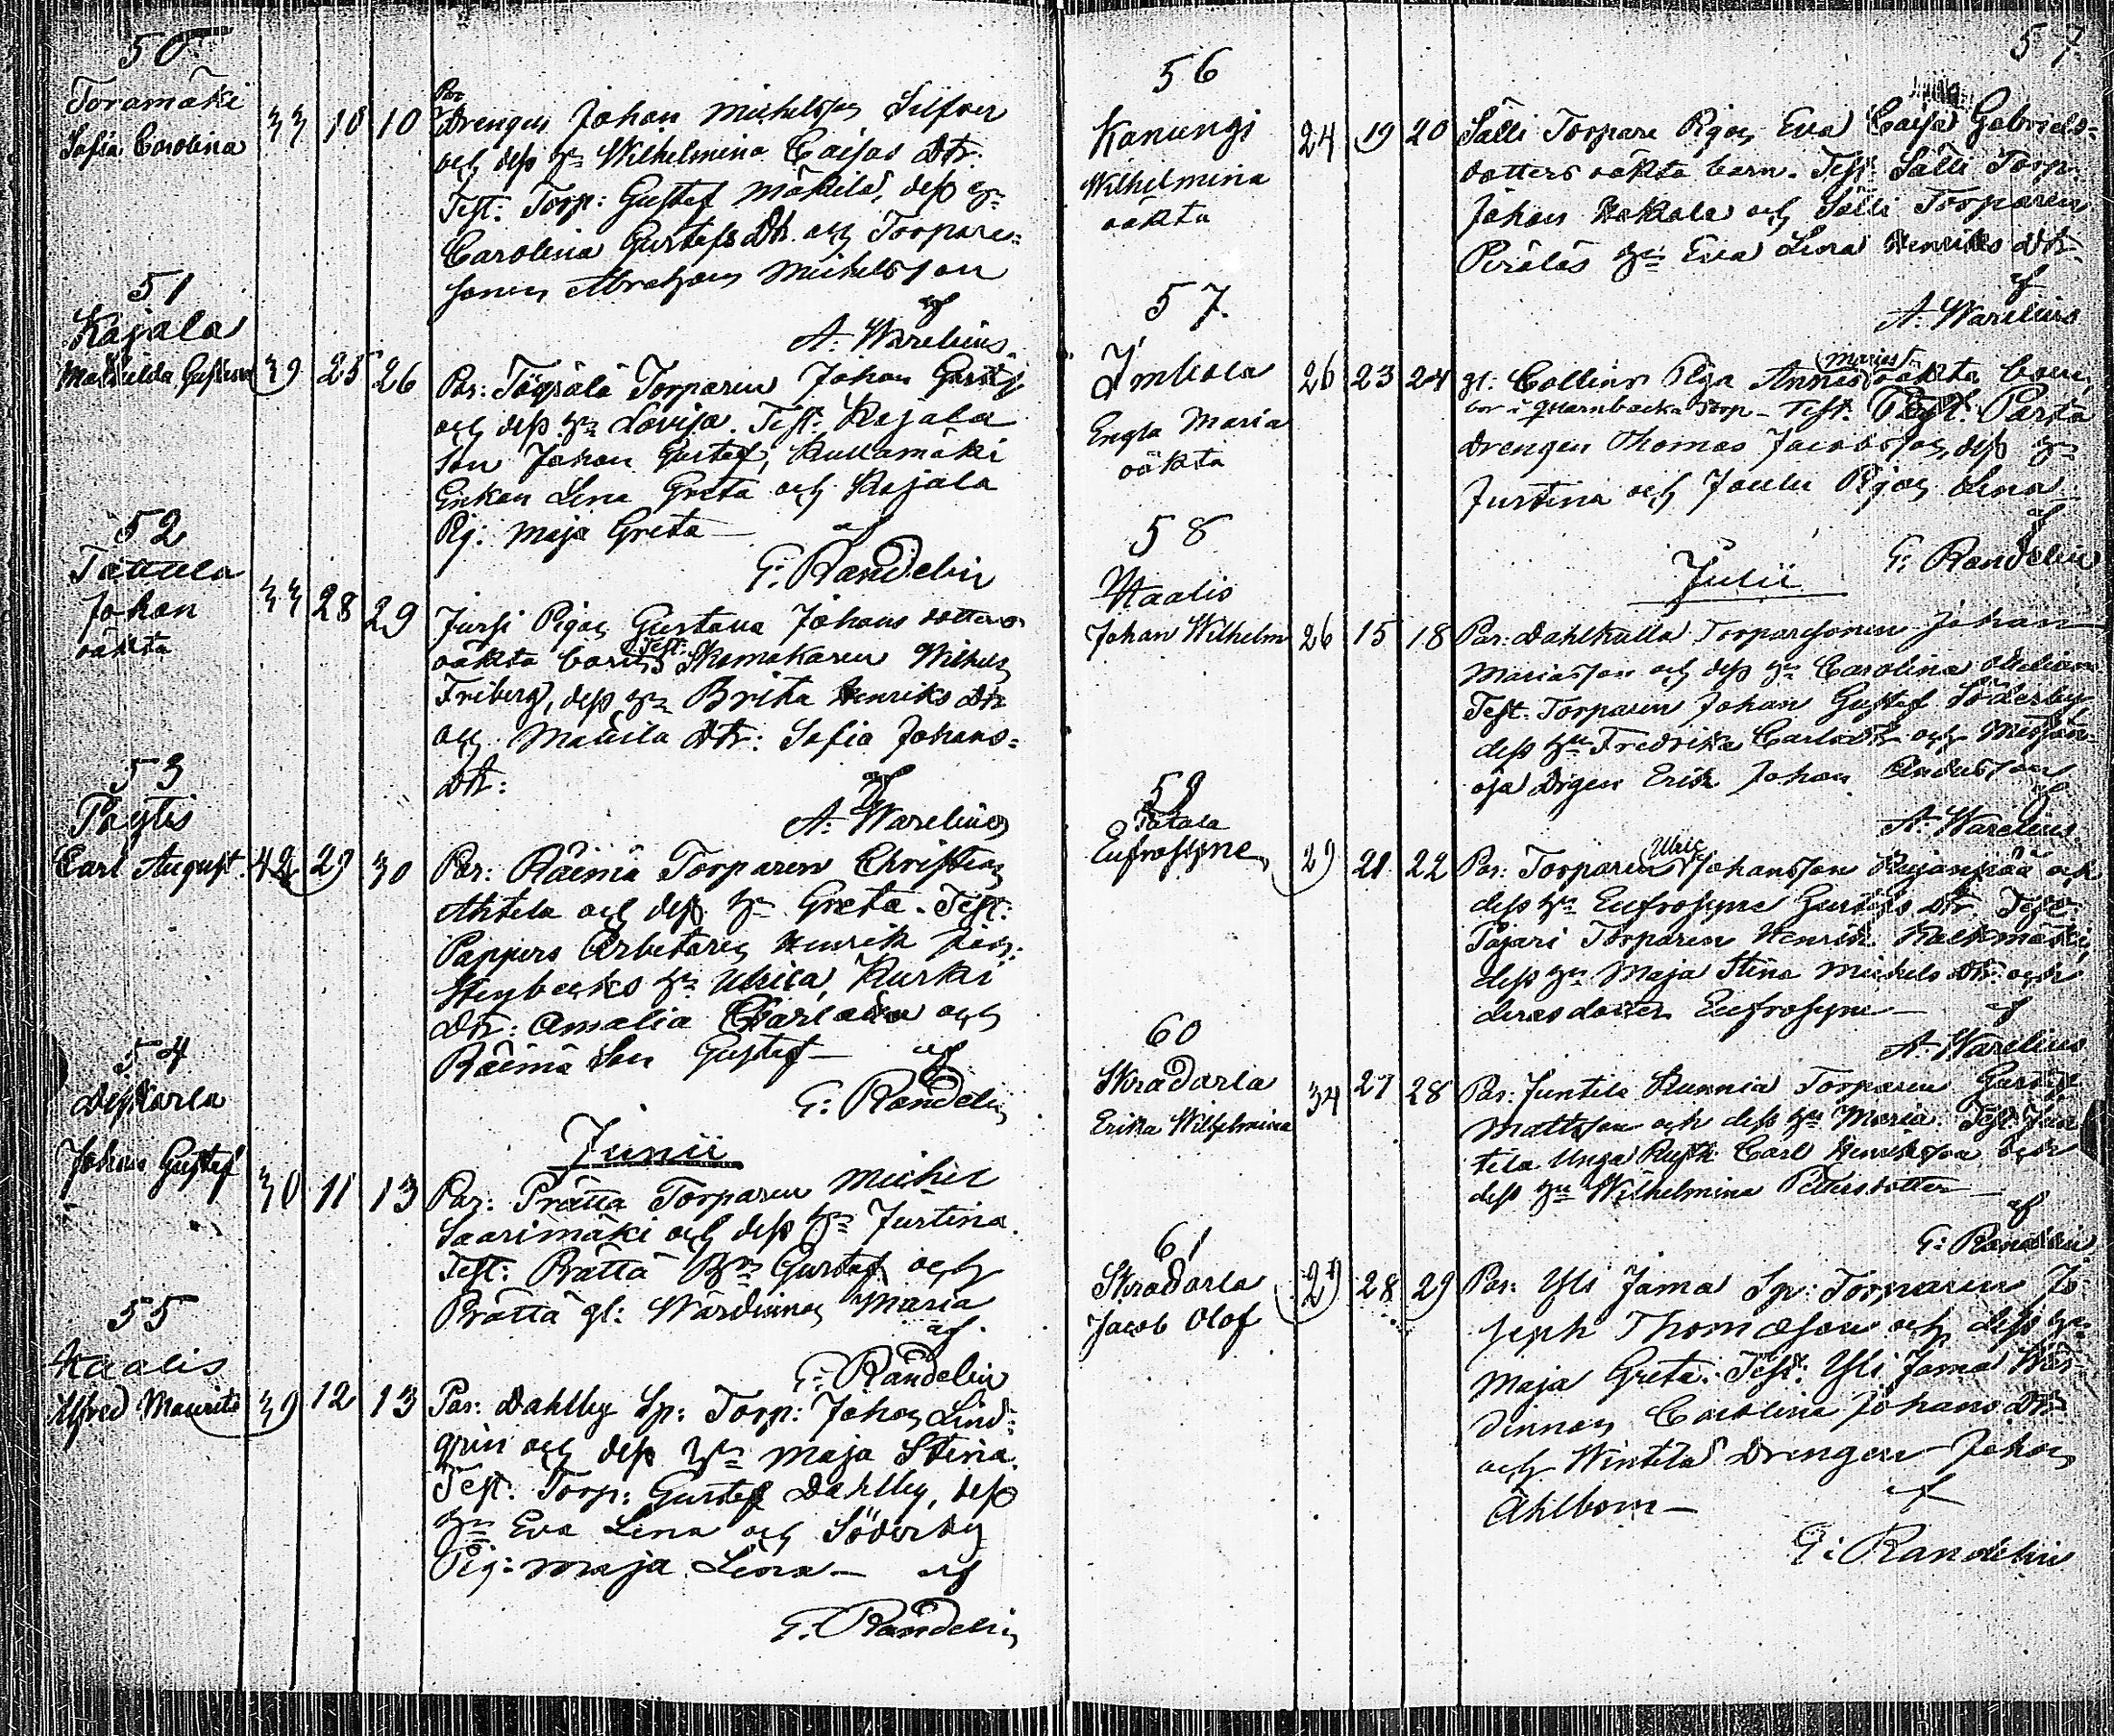 50
Toramäki
Sofia Carolina 33 10 10
Par:
Drengen Johan Michelsson Silfver
och dess h: Wilhelmina Caisas Dtr:
Test: Torp: Gustaf Mäkilä, dess h:
Carolina Gustafs Dtr. och Torpare-
sonen Abraham Michelsson
af
A: Warelius
51
Kajala
Mathilda Gustava 39 25 26
Par: Torparen Johan Gustaf
och dess h: Lovisa. Test: Kajala
Son Johan Gustaf, Kullamäki
Enkan Lena Greta och Kajala
Pig: Maja Greta — af
G: Randelin
52
Tattula
Johan
oäkta 33 28 29
Jussi Pigan Gustava Johans dotters
oäkta barn Test: Skomakaren Wilhelm
Friberg, dess h: Brita Henriks Dtr
och Mattila Dtr: Sofia Johans-
Dtr:
af
A: Warelius
53
Paytis
Carl August. 42 29 30
Par: Räimä Torparen Christian
Ahtela och dess h: Greta. Test:
Pappers Arbetaren Henrik
Stenbecks h: Ulrica, Kurki
Dtr: Amalia Carolina och
Räimä Son Gustaf — af
G: Randelin
Junii
54
Deskarla
Johan Gustaf 30 11 13
Par: Prättä Torparen Michel
Saarimäki och dess h: Justina.
Test: Prättä Bn Gustaf och
Prättä gl: Wärdinnan Maria
af
G: Randelin
55
Kaalis
Alfred Mauritz 39 12 13
Par: Dahlby Sp: Torp: Johan Lind-
grén och dess h: Maja Stina.
Test: Torp: Gustaf Dahlby, dess
h: Eva Lena och Söderby
Pig: Maja Lena — af
G: Randelin
57.
56
Kanungi
Wilhelmina
oäkta 24 19 20
Sälli Torpare Pigan Eva Caisa Gabriels-
dotters oäkta barn. Test: Sälli Torp:
Johan Kokala och Sälli Torparen
Peräläs h: Eva Lena Henriks Dtr:
af
A: Warelius
57.
Imkola
Engla Maria
oäkta 26 23 24
gl: Collins Piga Annas Marias oäkta barn,
bor i Qvarnbacka Torp — Test:
Drengen Thomas Jacobsson, dess h:
Justina och Joulu Pigan Lena
af
G: Randelin
Julii
58
Kaalis
Johan Wilhelm 26 15 18
Par: Dahlkulla Torparesonen Johan
Mariasson och dess h: Carolina
Test: Torparen Johan Gustaf Söderby,
dess h: Fredrika Carls Dtr och Metsän-
oja Drgen Erik Johan Andersson
af
A: Warelius
59
Tatala
Eufrosyne 29 21 22
Par: Torparen Ulric Johansson Kujanpää och
dess h: Eufrosyne Gustafs Dtr. Test:
Pajari Torparen Henrik
dess h: Maja Stina Michels Dtr: och
deras dotter Eufrosyne — af
A: Warelius
60
Skradarla
Erika Wilhelmina 34 27 28
Par: Juntila Kunnia Torparen Gustaf
Mattsson och dess h: Maria. Test: Jun-
tila Unga Rusth: Carl Henriksson och
dess h: Wilhelmina Pettersdotter —
af
G: Randelin
61
Skradarla
Jacob Olof 29 28 29
Par: Yli Jama Sp: Torparen Jo-
seph Thomasson och dess h:
Maja Greta. Test: Yli Jama Wär-
dinnan Carolina Johans Dtr
och Wintila Drengen Johan
Ahlbom — af
G: Randelin